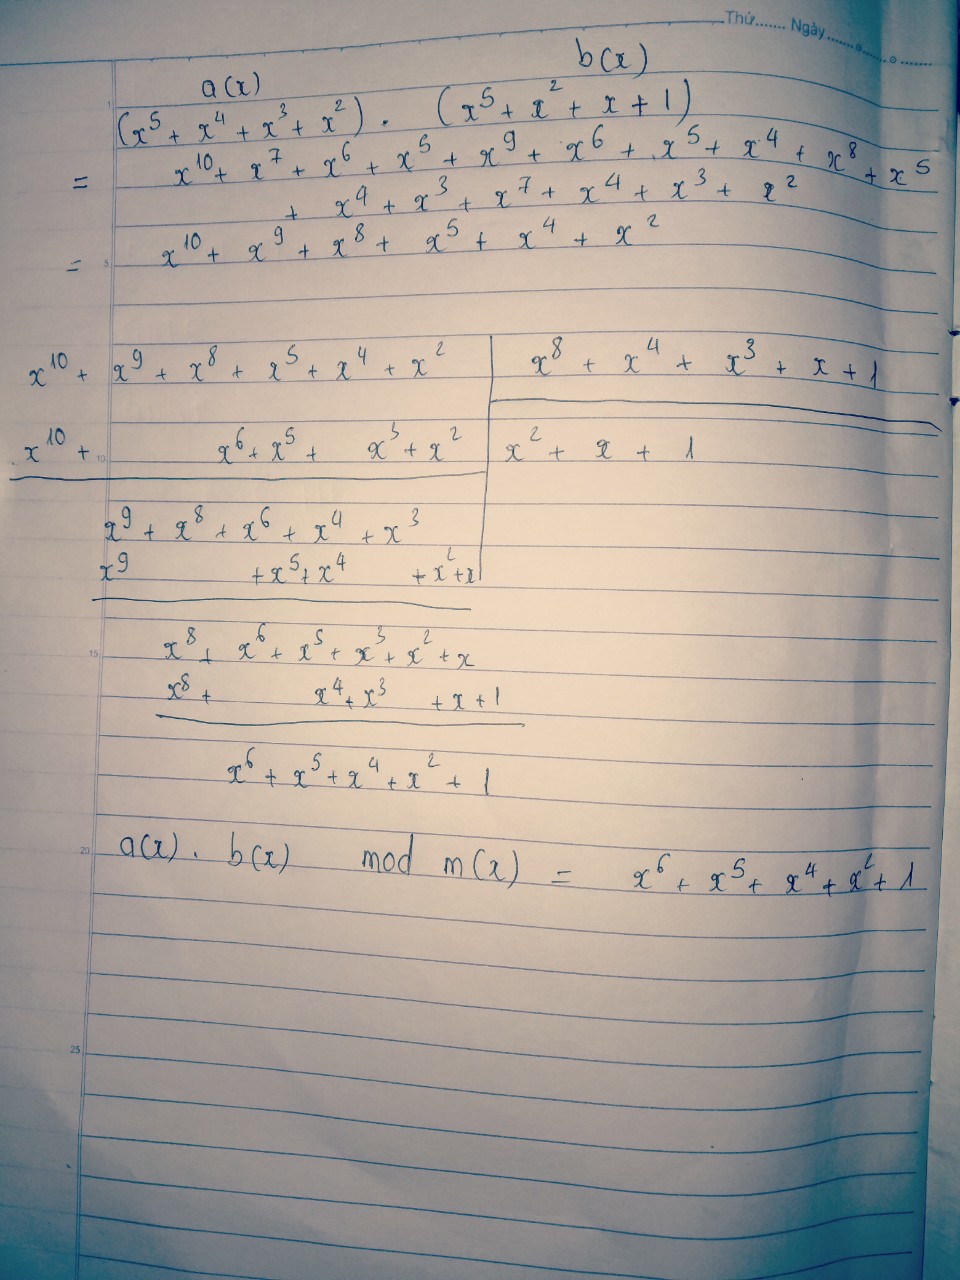 Thứ....... Ngày.................
a(x) b(x)
(x⁵ + x⁴ + x³ + x²) . (x⁵ + x² + x + 1)
= x¹⁰ + x⁷ + x⁶ + x⁵ + x⁹ + x⁶ + x⁵ + x⁴ + x⁸ + x⁵
+ x⁴ + x³ + x⁷ + x⁴ + x³ + x²
= x¹⁰ + x⁹ + x⁸ + x⁵ + x⁴ + x²
x¹⁰ + x⁹ + x⁸ + x⁵ + x⁴ + x² x⁸ + x⁴ + x³ + x + 1
x¹⁰ + x⁶ + x⁵ + x³ + x² x² + x + 1
x⁹ + x⁸ + x⁶ + x⁴ + x³
x⁹ + x⁵ + x⁴ + x² + x
x⁸ + x⁶ + x⁵ + x³ + x² + x
x⁸ + x⁴ + x³ + x + 1
x⁶ + x⁵ + x⁴ + x² + 1
a(x) . b(x) mod m(x) = x⁶ + x⁵ + x⁴ + x² + 1